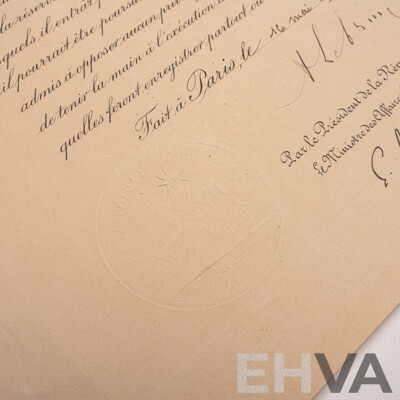 la réserv
quels il entrar
il pourrait être poursu
admis à opposer aucun pré
de tenir la main à l'exécution
quelles feront enregistrer partout ou
Fait à Paris, le 16 mai
Par le Président de la Rép
Le Ministre des Affaire
E.
EHVA